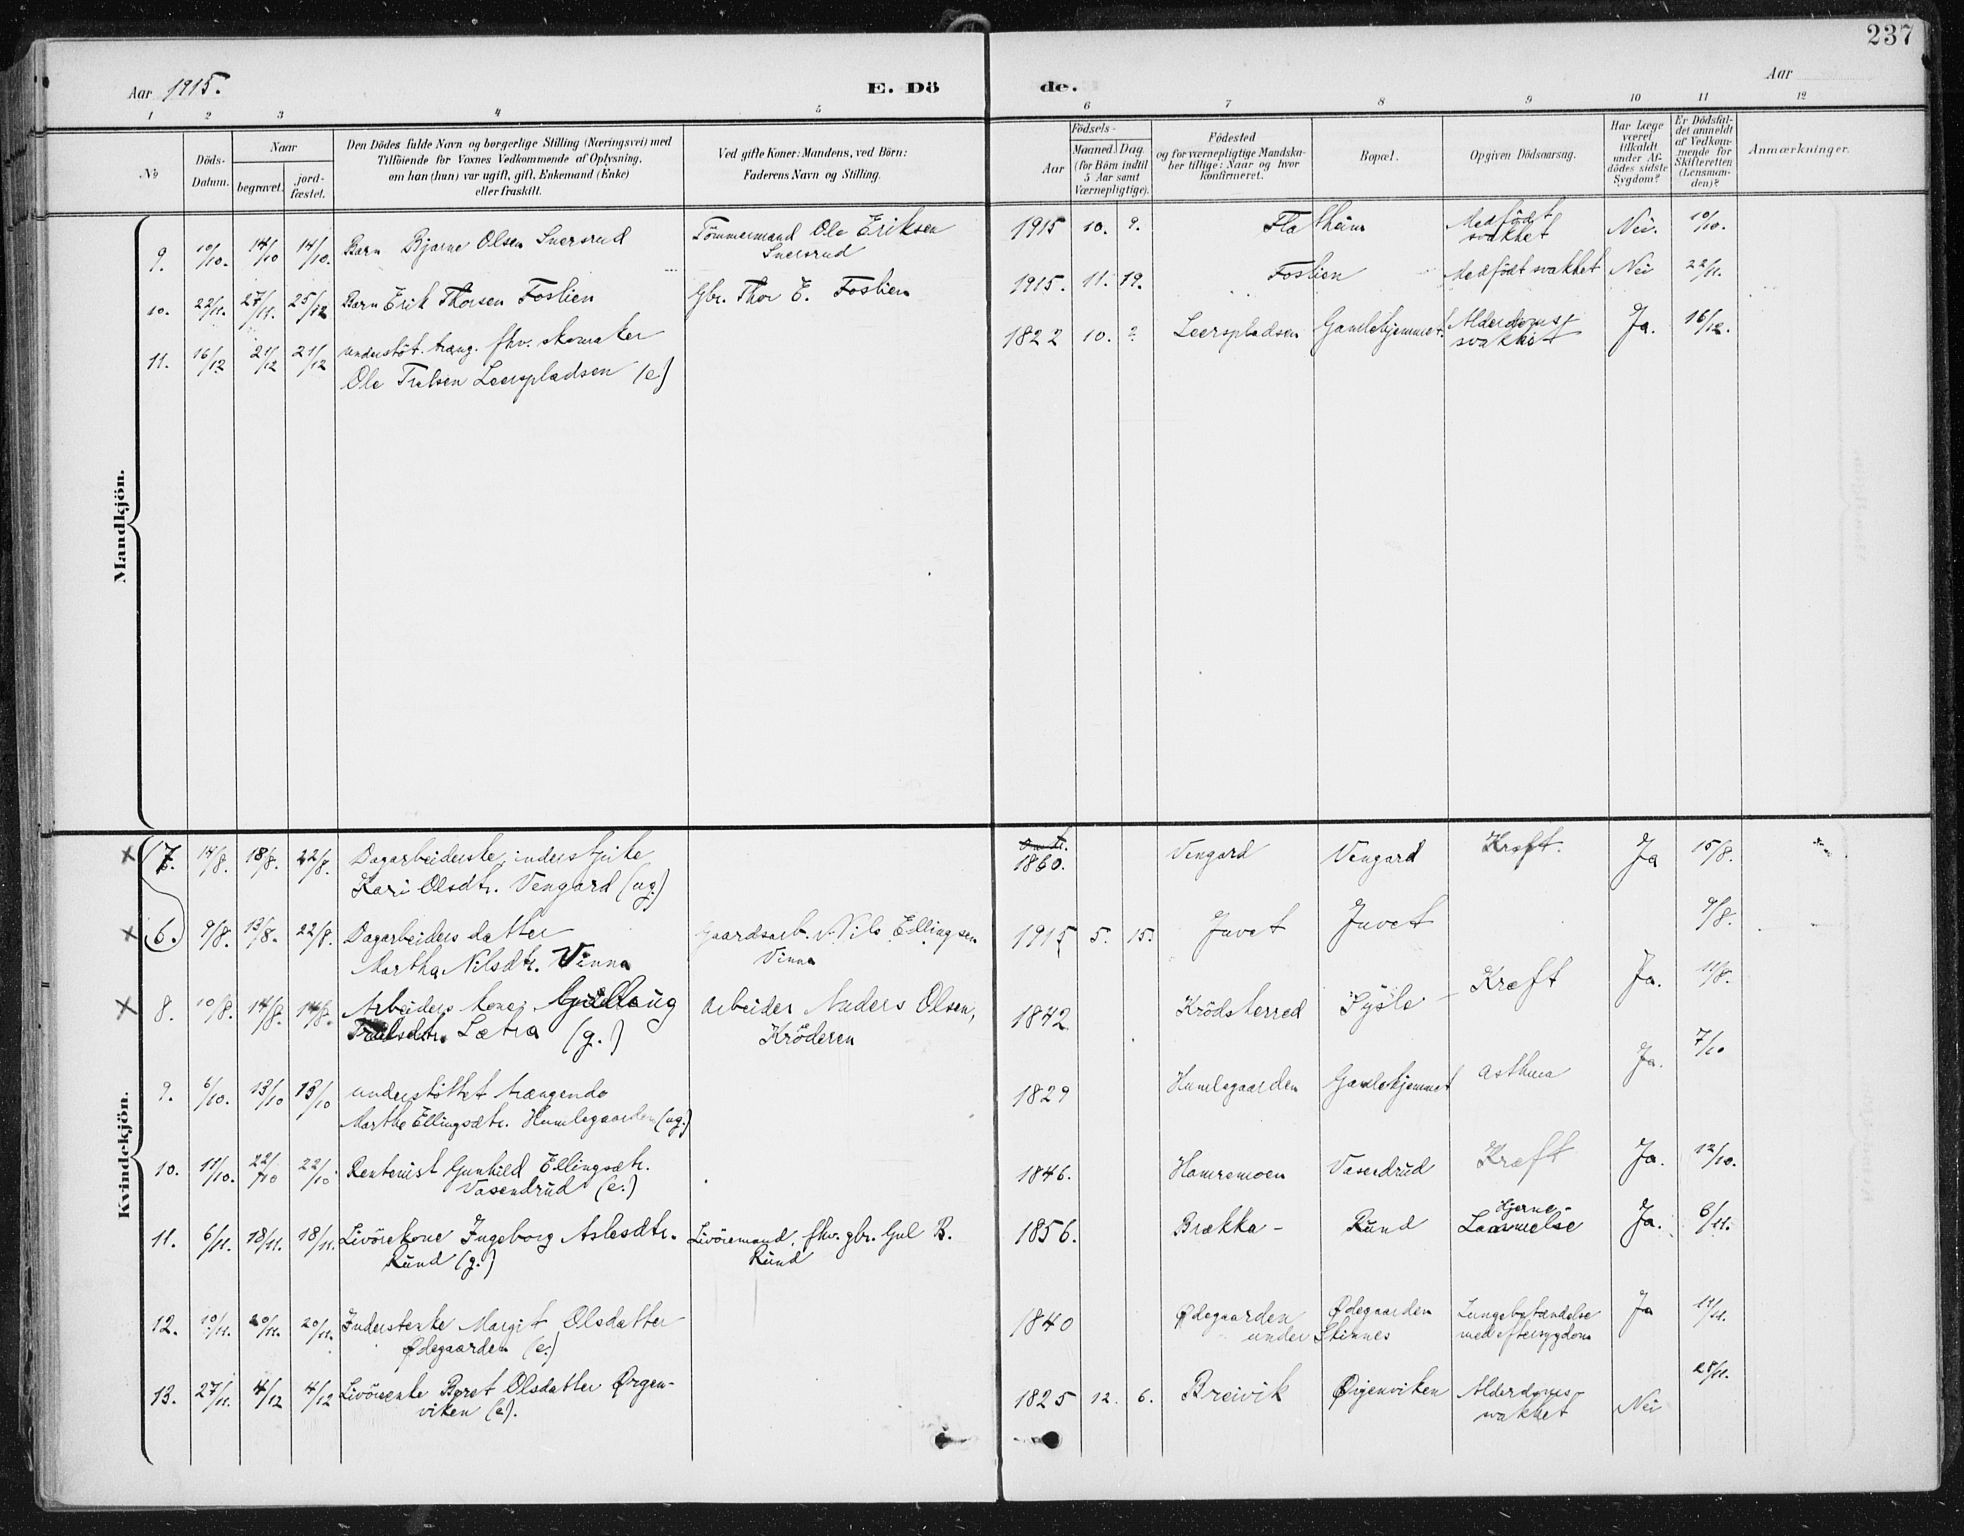 237
Aar 1915.
E. Dö
de.
Aar
1 2 3 4 5 6 7 8 9 10 11 12
No
Döds-
Datum.
Naar
begravet.
jord-
fæstet.
Den Dödes fulde Navn og borgerlige Stilling (Næringsvei) med
Tilföiende for Voxnes Vedkommende af Oplysning,
om han (hun) var ugift, gift, Enkemand (Enke)
eller fraskilt.
Ved gifte Koner: Mandens, ved Börn:
Faderens Navn og Stilling.
Födsels-
Aar
Maaned. Dag.
(for Börn indtil
5 Aar samt
Værnepligtige).
Födested
og for værnepligtige Mandska-
ber tillige: Naar og hvor
konfirmeret.
Bopæl.
Opgiven Dödsaarsag.
Har Læge
været
tilkaldt
under Af-
dödes sidste
Sygdom?
Er Dödsfal-
det anmeldt
af Vedkom-
mende for
Skifteretten
(Lensman-
den)?
Anmærkninger.
Mandkjön.
9. 10/10. 14/10 14/10. Barn Bjarne Olsen Snersrud Tömmermand Ole Eriksen
Snersrud
1915 10. 9. Flatheim Medfödt
svakhet Nei. 10/10.
10. 22/11. 27/11. 25/12 Barn Erik Thorsen Foslien Gbr. Thor E. Foslien 1915. 11. 19. Foslien Medfödt svakhet Nei 22/11.
11. 16/12 21/12 21/12 understöt. træng. fhv. skomaker
Ole Trulsen Leerspladsen (e)
1822 10. ? Leerspladsen Gamlehjemmet. Alderdoms-
svakhet Ja. 16/12.
Kvindekjön.
7. 14/8. 18/8. 22/8. Dagarbeiderske, inderstpike
Kari Olsdtr. Vengard (ug.)
1860. Vengard Vengard Kræft. Ja 15/8.
6. 9/8. 13/8. 22/8. Dagarbeiders datter
Martha Nilsdtr. Vinna
Gaardsarb. Nils Ellingsen
Vinna
1915 5. 15. Juvet Juvet 9/8.
8. 10/8. 14/8. 14/8. Arbeiders kone Gudlaug
Trulsdtr. Lætra (g.)
Arbeider Anders Olsen,
Kröderen
1842 Krödsherred Sysle Kræft Ja. 11/8.
9. 6/10. 13/10 13/10 understöttet trængende
Marthe Ellingsdtr. Humlegaarden (ug.)
1829 Humlegaarden Gamlehjemmet asthma Ja. 7/10
10. 11/10. 22/10 22/10. Rentenist Gunhild Ellingsdtr.
Vasendrud (e.)
1846. Hamremoen Vasendrud Kræft Ja. 12/10.
11. 6/11. 18/11. 18/11. Livörekone Ingeborg Aslesdtr.
Rund (g.)
Livöremand, fhv. gbr. Gul B.
Rund
1856. Brækka- Rund Hjerne-
Lammelse Ja. 6/11.
12. 10/11. 20/11. 20/11. Inderstenke Margit Olsdatter
Ødegaarden (e.)
1840 Ødegaarden Ødegaarden
under Skinnes
Lungebetændelse
med eftersygdom Ja 11/11.
13. 27/11. 4/12 4/12 Livöreenke Beret Olsdatter Ørgen-
viken (e).
1825 12. 6. Breivik Ørgenviken Alderdoms-
svakhet Nei 28/11.